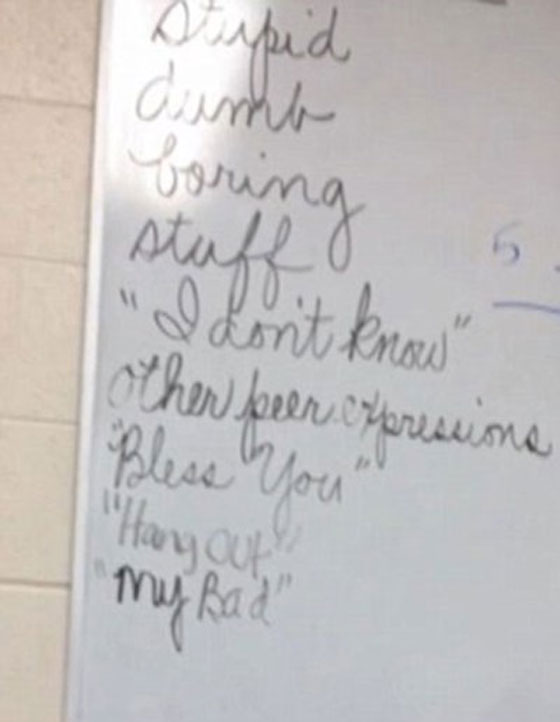 stupid
dumb
boring
stuff
5
"I don't know"
other peer expressions
"Bless You"
"Hang Out"
"My Bad"